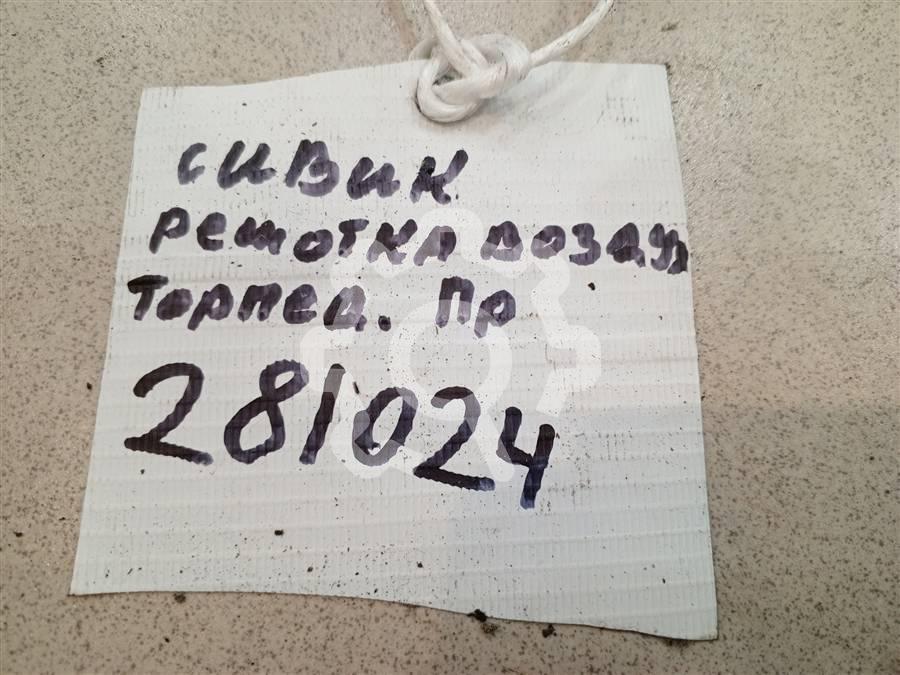 сивик
решотка воздух
торпед. пр
281024